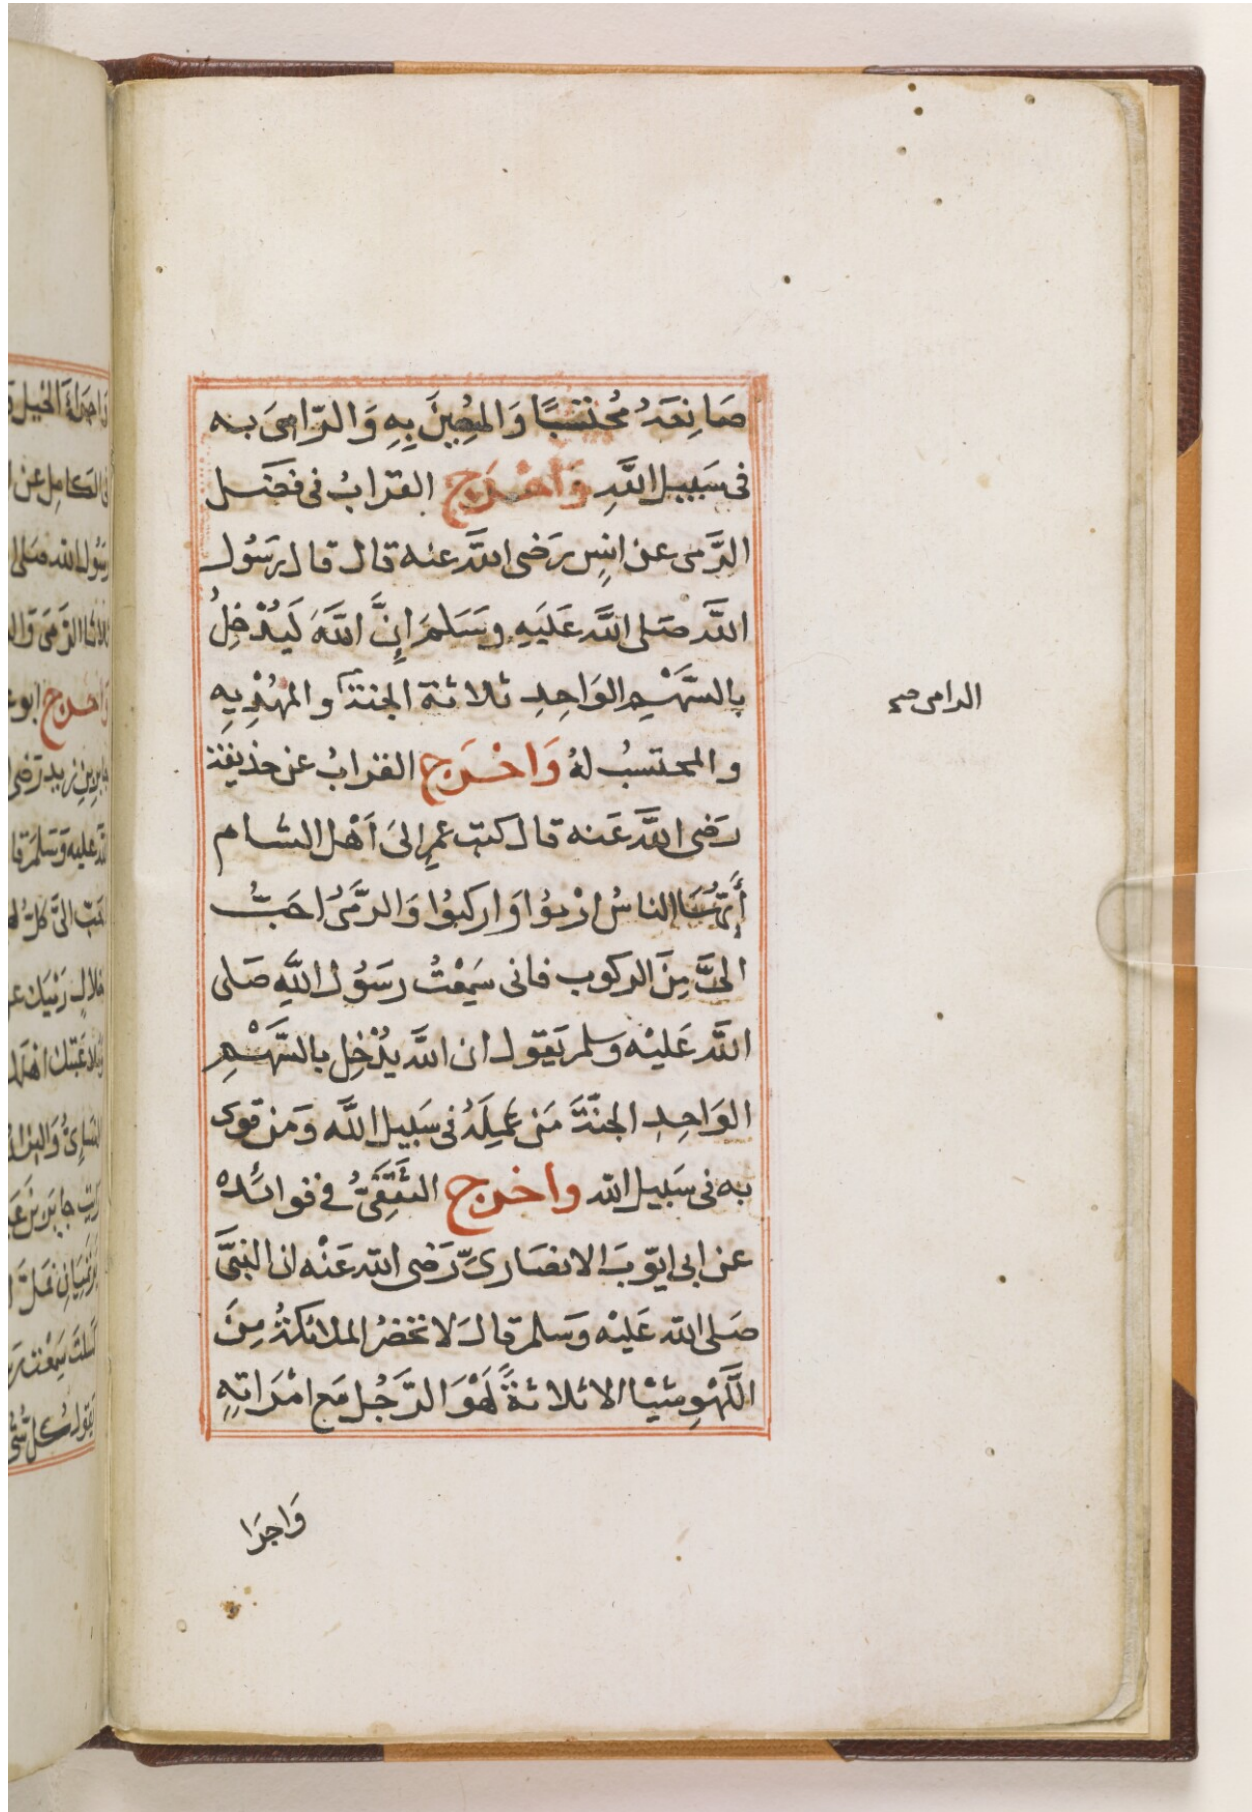 صَانِعَهُ مُحْتَسِبًا وَالمُعِينَ بِهِ وَالرّامِىَ به
فى سَبِيلِ اللَّهِ وَاخْرَج القرابُ فى فَضَل
الرَّمى عن انِس رَضى اللَّه عنه قال قال رَسُول
اللَّه صَلى اللَّه عَلَيهِ وسَلمَ اِنَّ اللَّهَ لَيُدْخِلُ
بِالسَّهْمِ الوَاحِدِ ثلاثة الجنةَ والمهْدِيهِ
الرامى صح
والمحتسبُ لهُ وَاخْرَج القرابُ عن حذيفة
رَضى اللَّه عَنه قال كتب عمر اِلىَ اَهْل الشام
أَيُّهَا الناسُ ارْمُوا وَاركبُوا وَالرَّمىُ احَبُّ
الىَّ مِنَ الركوب فانى سَمِعْتُ رسَوُل اللَّهِ صَلى
اللَّه عَليْه وَسلم يَقول ان اللَّه يُدْخِل بالسَّهْمِ
الوَاحِدِ الجنّةَ مَن عَمِلَهُ فى سَبيل اللَّه وَمَن قوى
به فى سَبيل الله واخرج الثقَفىُّ فے فوائده
عن ابى ايّوبَ الانصَارىِّ رَضى الله عَنْه ان النبىَّ
صَلى الله عَليْه وَسَلم قالَ لا تحْضرُ الملائكةُ مِنَ
اللَّهْوِ شيْا الا ثلاثةً لَهْوَ الرَّجُل مَع امْرَاتِهِ
وَاجرَا